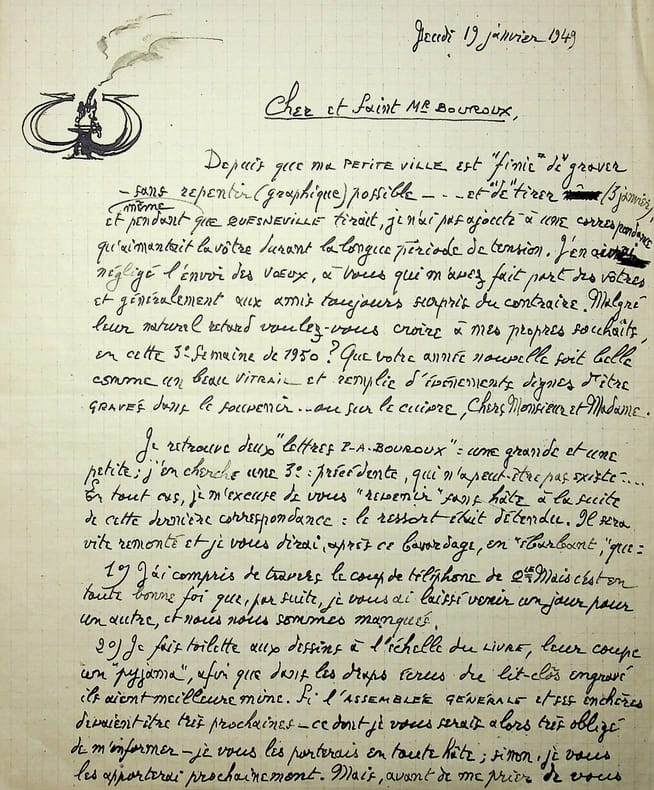 Jeudi 19 janvier 1949
Cher et Saint Mr BOUROUX,
Depuis que ma PETITE VILLE est "finie" de "graver
— sans repentir (graphique) possible — .. et "de" tirer (13 janvier,
même
et pendant que QUESNEVILLE tirait, je n'ai pas ajouté à une correspondance
qu'aimantait la vôtre durant la longue période de tension. J'en
négligé l'envoi des vœux, à vous qui m'avez fait part des vôtres
et généralement aux amis toujours surpris du contraire. Malgré
leur naturel retard voulez-vous croire à mes propres souhaits,
en cette 3e semaine de 1950 ? Que votre année nouvelle soit belle
comme un beau VITRAIL et remplie d'événements dignes d'être
GRAVÉS dans le souvenir... ou sur le cuivre, Chers Monsieur et Madame.
Je retrouve deux "lettres P-A. BOUROUX" : une grande et une
petite ; j'en cherche une 3e : précédente, qui n'a peut-être pas existé....
En tout cas, je m'excuse de vous "revenir" sans hâte à la suite
de cette dernière correspondance : le ressort était détendu. Il sera
vite remonté et je vous dirai, après ce bavardage, en "ébarbant", que :
1o) J'ai compris de travers le coup de téléphone de Mais c'est en
toute bonne foi que, par suite, je vous ai laissé venir un jour pour
un autre, et nous nous sommes manqués.
2o) Je fais toilette aux dessins à l'échelle du LIVRE, leur coupe
un "pyjama", afin que dans les draps écrus du lit-clos engravé
ils aient meilleure mine. Si l'ASSEMBLÉE GÉNÉRALE et ses enchères
devaient être très prochaines — ce dont je vous serais alors très obligé
de m'informer — je vous les porterais en toute hâte ; sinon, je vous
les apporterai prochainement. Mais, avant de me prier de vous